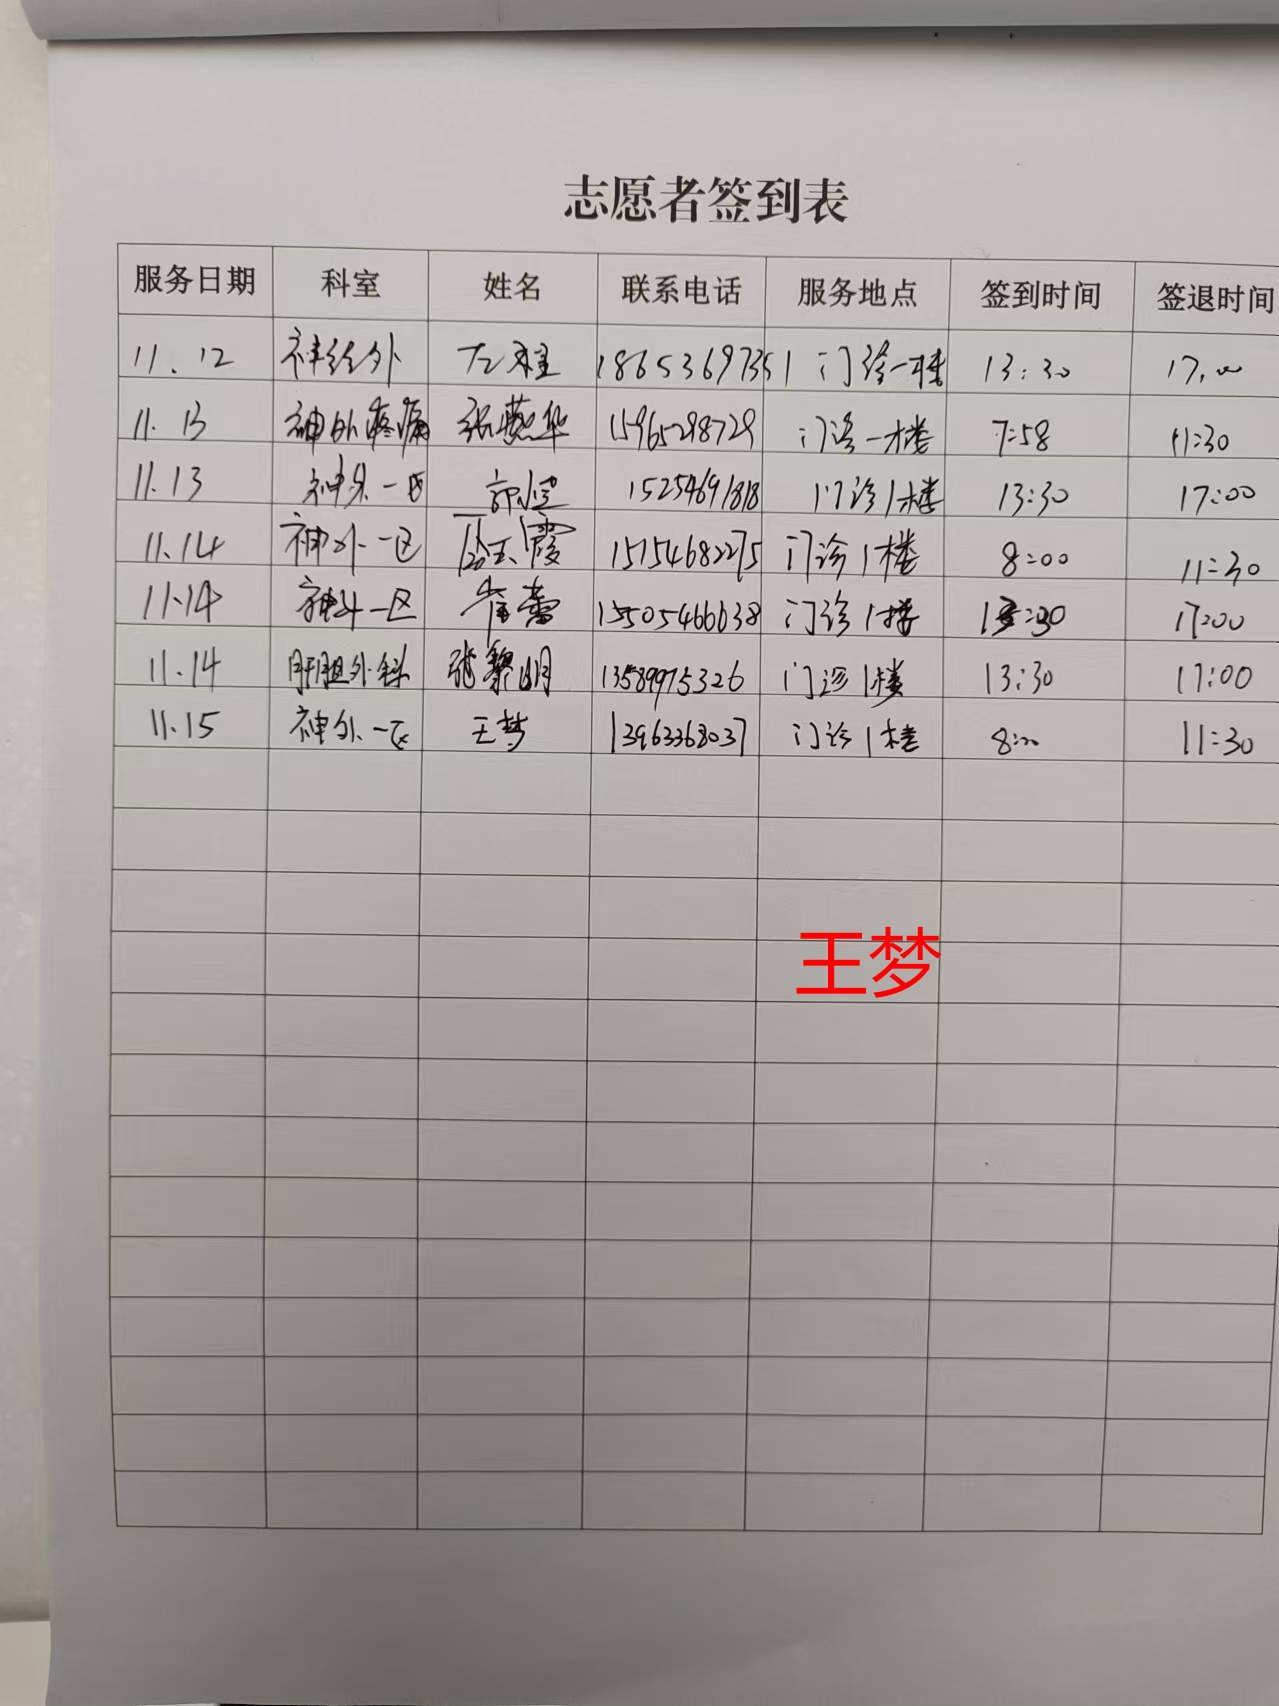 志愿者签到表
服务日期 科室 姓名 联系电话 服务地点 签到时间 签退时间
11.12 神经外 左程 18653697351 门诊一楼 13:30 17:00
11.13 神外疼痛 张燕华 15965298729 门诊一楼 7:58 11:30
11.13 神外一区 15254691818 门诊1楼 13:30 17:00
11.14 神外一区 玉霞 15154682275 门诊1楼 8:00 11:30
11.14 神外一区 崔蕾 15505466638 门诊1楼 13:30 17:00
11.14 肝胆外科 张黎明 13589975326 门诊1楼 13:30 17:00
11.15 神外一区 王梦 13963368037 门诊1楼 8:00 11:30
王梦